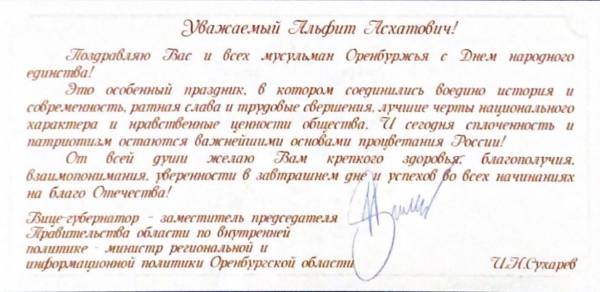 Уважаемый Альфит Асхатович!
Поздравляю Вас и всех мусульман Оренбуржья с Днем народного
единства!
Это особенный праздник, в котором соединились воедино история и
современность, ратная слава и трудовые свершения, лучшие черты национального
характера и нравственные ценности общества. И сегодня сплоченность и
патриотизм остаются важнейшими основами процветания России!
От всей души желаю Вам крепкого здоровья, благополучия,
взаимопонимания, уверенности в завтрашнем дне и успехов во всех начинаниях
на благо Отечества!
Вице-губернатор - заместитель председателя
Правительства области по внутренней
политике - министр региональной и
информационной политики Оренбургской области И.Н.Сухарев